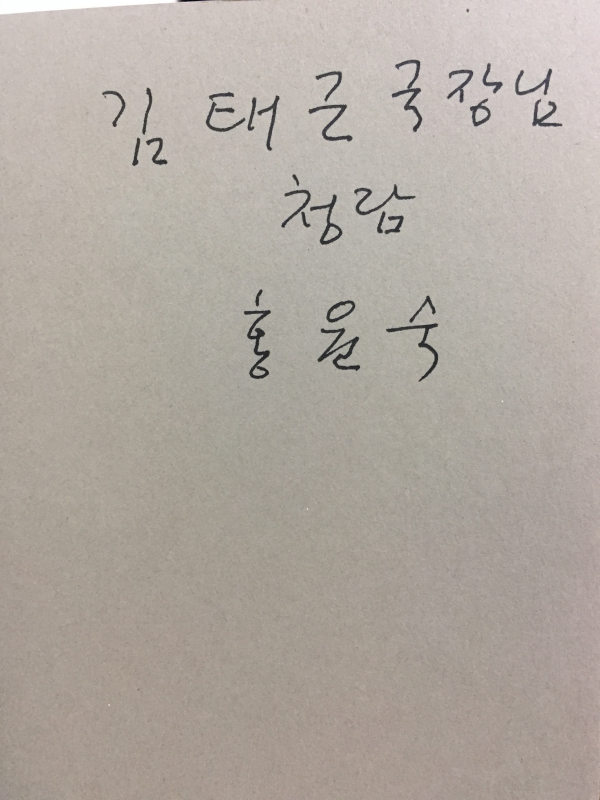 김 태 근 국장님
청람
홍 윤 숙